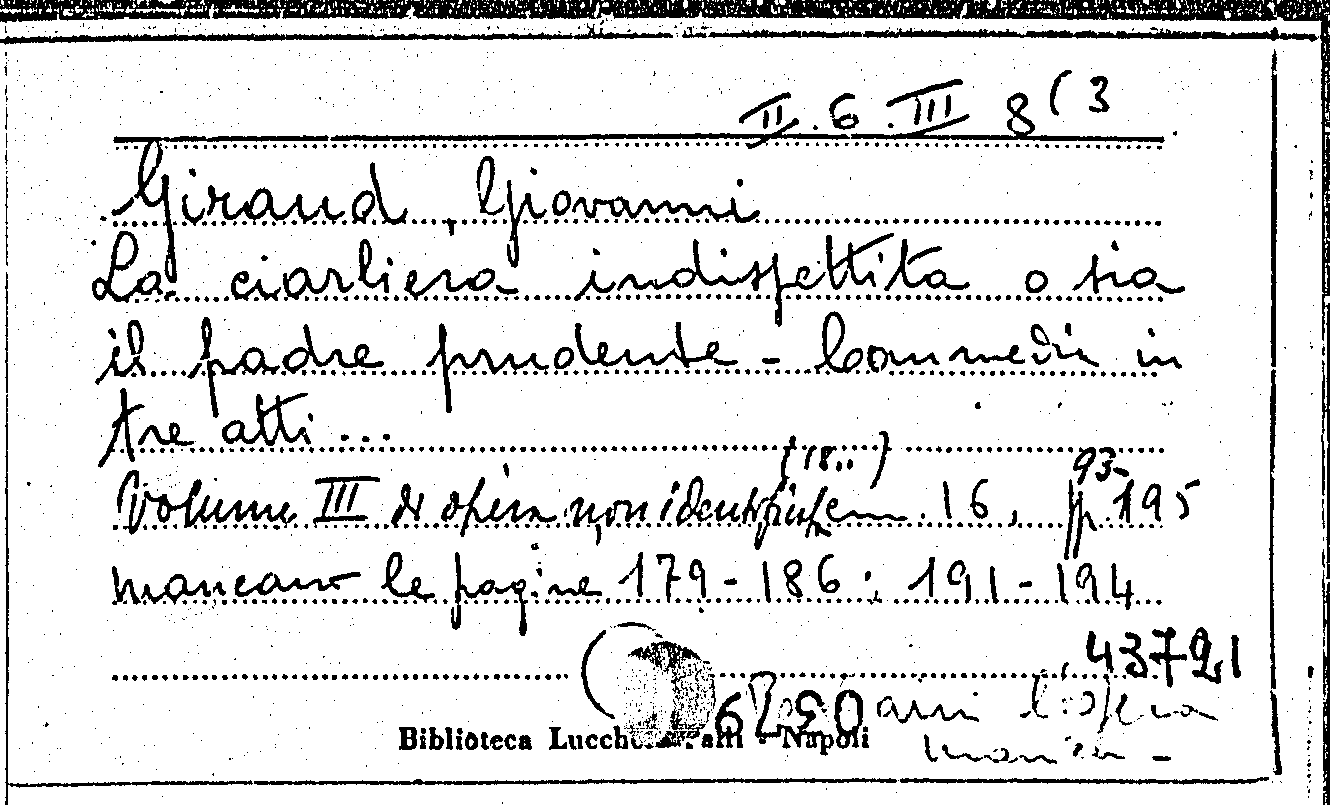 II.6.III 8(3
Giraud, Giovanni
La ciarliera indispettita o sia
il padre prudente - Commedia in
tre atti...
(18..) 93-
Volume III di opera non identif. in 16, pp. 195
mancano le pagine 179-186; 191-194
43721
l'opera
manca -
Biblioteca Lucchesi-Palli - Napoli